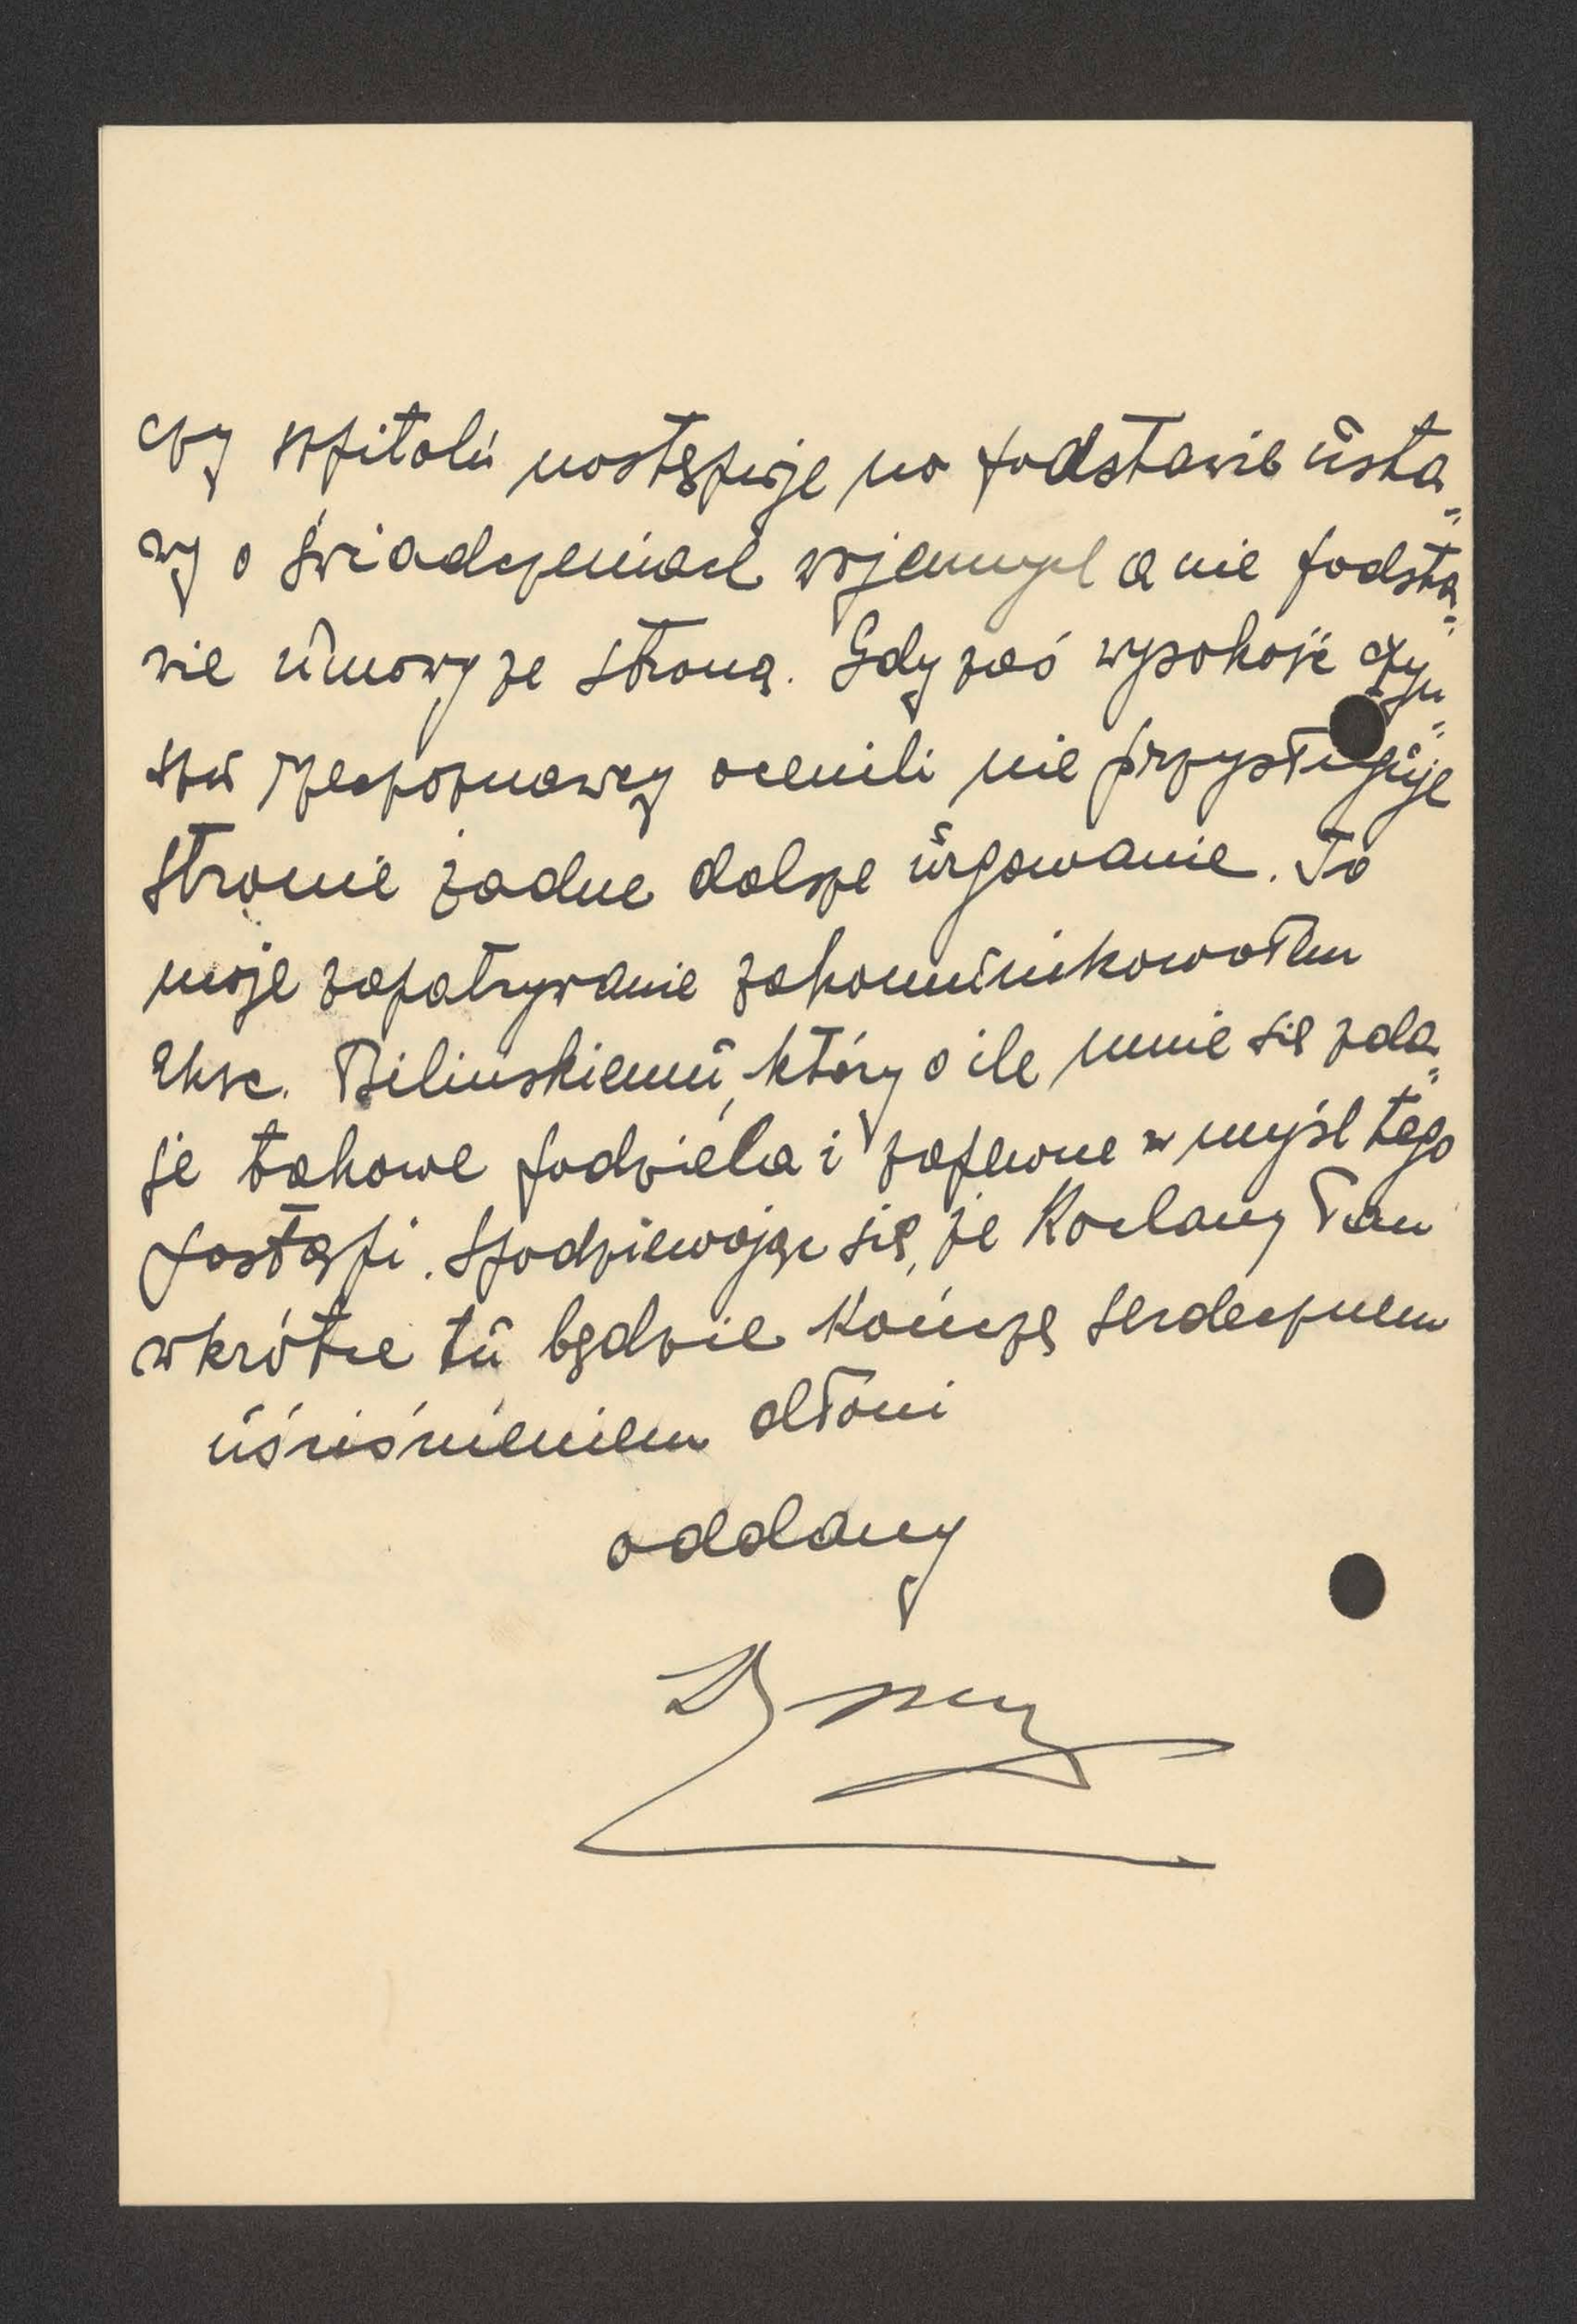 czy szpitalu następuje na podstawie usta„
wy o świadczeniach wojennych a nie podsta„
wie umowy ze stroną. Gdy zaś wysokość czyn„
szu rzeczoznawcy ocenili nie przysługuje
stronie żadne dalsze urgowanie. To
moje zapatrywanie zakomunikowałem
Eksc. Bilinskiemu, który o ile mnie się zda„
je takowe podziela i zapewne w myśl tego
postąpi. Spodziewając się, że Kochany Pan
wkrótce tu będzie kończę serdecznem
uściśnieniem dłoni
oddany